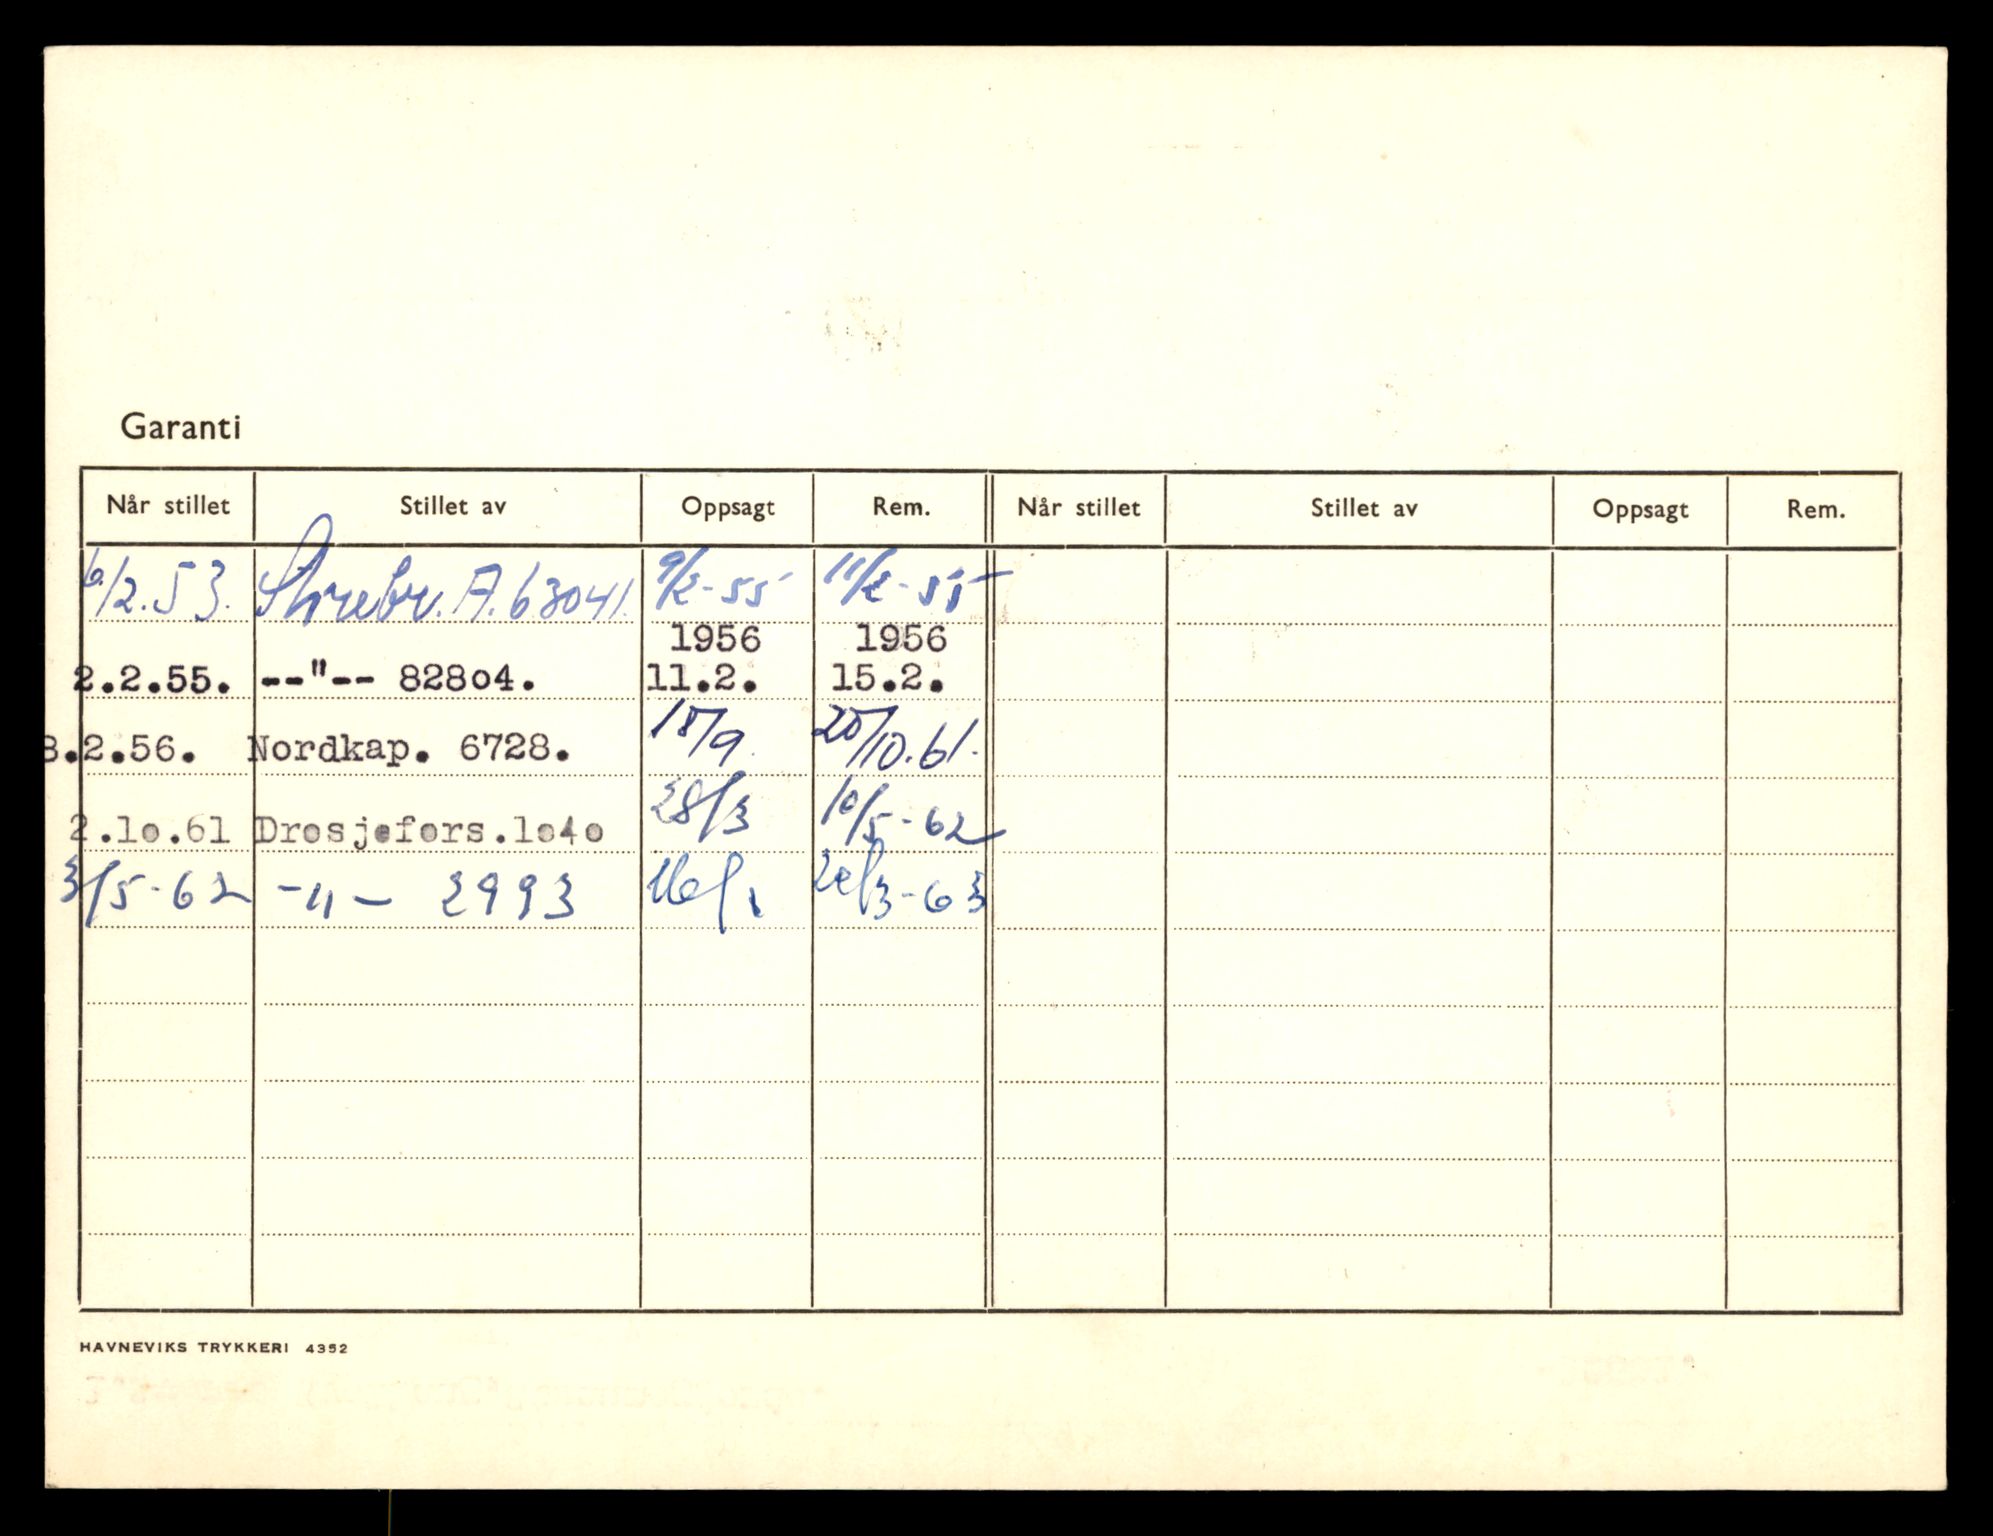 Garanti
Når stillet Stillet av Oppsagt Rem. Når stillet Stillet av Oppsagt Rem.
6/2.53. Storebr. A. 63041. 9/2-55 11/2-55
1956 1956
2.2.55. --"-- 828o4. 11.2. 15.2.
8.2.56. Nordkap. 6728. 18/9. 20/10.61.
2.1o.61 Drosjefors.1o4o 28/3 10/5-62
3/5-62 -"- 2993 16/1 20/3-63
HAVNEVIKS TRYKKERI 4352